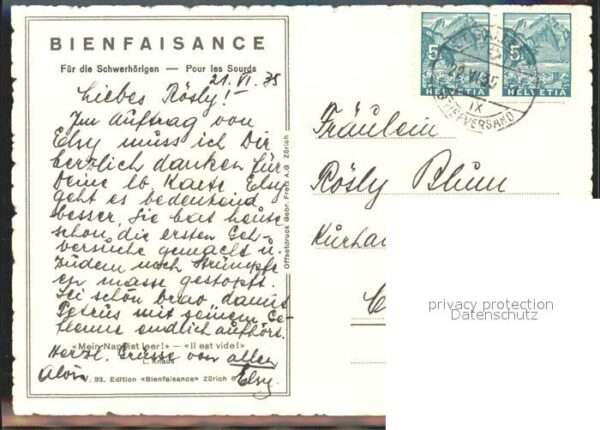 BIENFAISANCE
Für die Schwerhörigen — Pour les Sourds
21. VI. 35
Liebes Rösly!
Im Auftrag von
Elsy muss ich Dir
herzlich danken für
Deine lb. Karte. Elsy
geht es bedeutend
besser. Sie hat heute
schon die ersten Geh-
versuche gemacht u.
zudem noch Strümpfe
en masse gestopft.
Sei schön brav, damit
Petrus mit seinem Ge-
flenne endlich aufhört.
«Mein Napf ist leer!» — «Il est vide!»
L. Knaus
Herzl. Grüsse von allen
Alois
Elsy
93. Edition «Bienfaisance» Zürich 6
Offsetdruck Gebr. Fretz A.G. Zürich
5 5
HELVETIA HELVETIA
VI.35
IX
BRIEFVERSAND
Fräulein
Rösly Blum
Kurha
privacy protection
Datenschutz